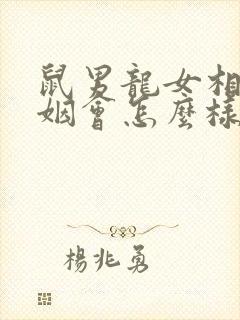 鼠男龍女相
姻會怎麼樣
楊兆勇